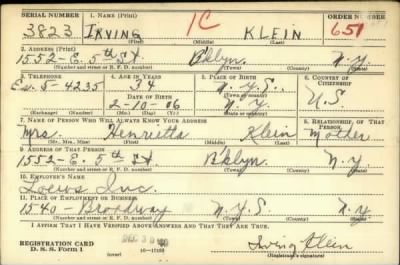 SERIAL NUMBER 1. NAME (Print) ORDER NUMBER
3823 IRVING 1C KLEIN 651
(First) (Middle) (Last)
2. ADDRESS (Print)
1552-E. 5th St. Bklyn. N.Y.
(Number and street or R. F. D. number) (Town) (County) (State)
3. TELEPHONE 4. AGE IN YEARS 5. PLACE OF BIRTH 6. COUNTRY OF CITIZENSHIP
Es. 5-4235 34 N.Y.C.
DATE OF BIRTH (Town or county)
2-10-06 N.Y. U.S.
(Exchange) (Number) (Mo.) (Day) (Yr.) (State or country)
7. NAME OF PERSON WHO WILL ALWAYS KNOW YOUR ADDRESS 8. RELATIONSHIP OF THAT PERSON
Mrs. Henrietta Klein Mother
(Mr., Mrs., Miss) (First) (Middle) (Last)
9. ADDRESS OF THAT PERSON
1552-E. 5th St. Bklyn. N.Y.
(Number and street or R. F. D. number) (Town) (County) (State)
10. EMPLOYER'S NAME
Loews Inc.
11. PLACE OF EMPLOYMENT OR BUSINESS
1540-Broadway N.Y.C. N.Y.
(Number and street or R. F. D. number) (Town) (County) (State)
I AFFIRM THAT I HAVE VERIFIED ABOVE ANSWERS AND THAT THEY ARE TRUE.
REGISTRATION CARD
D. S. S. Form 1 (over) Irving Klein
(Registrant's signature)